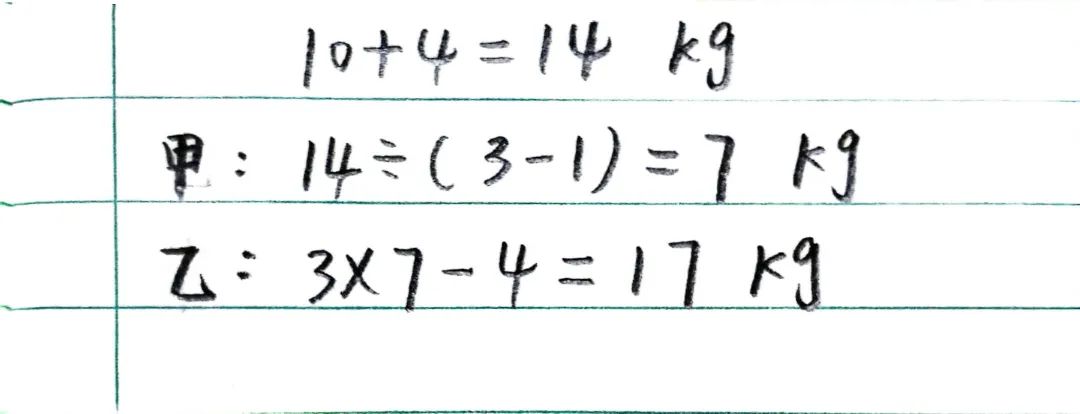 10+4=14 kg
甲：14÷(3-1)=7 kg
乙：3×7-4=17 kg